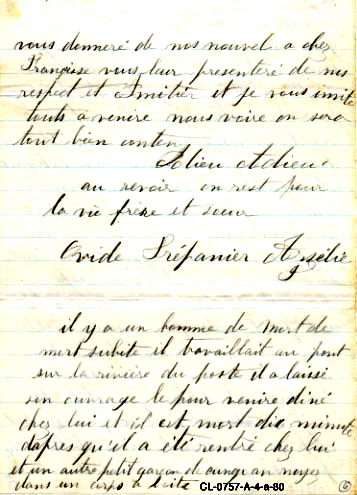 vous donneré de nos nouvel a chez
Françoise vous leur presenteré de nos
respect et Amitier et je vous invite
touts a venire nous voire on sera
tout bien conten
Adieu Adieu
au revoir on rest pour
la vie frère et soeur
Ovide Trépanier Asélie
il y a un homme de mort de
mort subite il travaillait au pont
sur la rivière du poste il a laissé
son ouvrage le pour venire diné
chez lui et il est mort dic minute
dapres qu'il a été rentré chez lui
et un autre petit garçon de noyer
dans un corps a
CL-0757-A-4-a-80
6